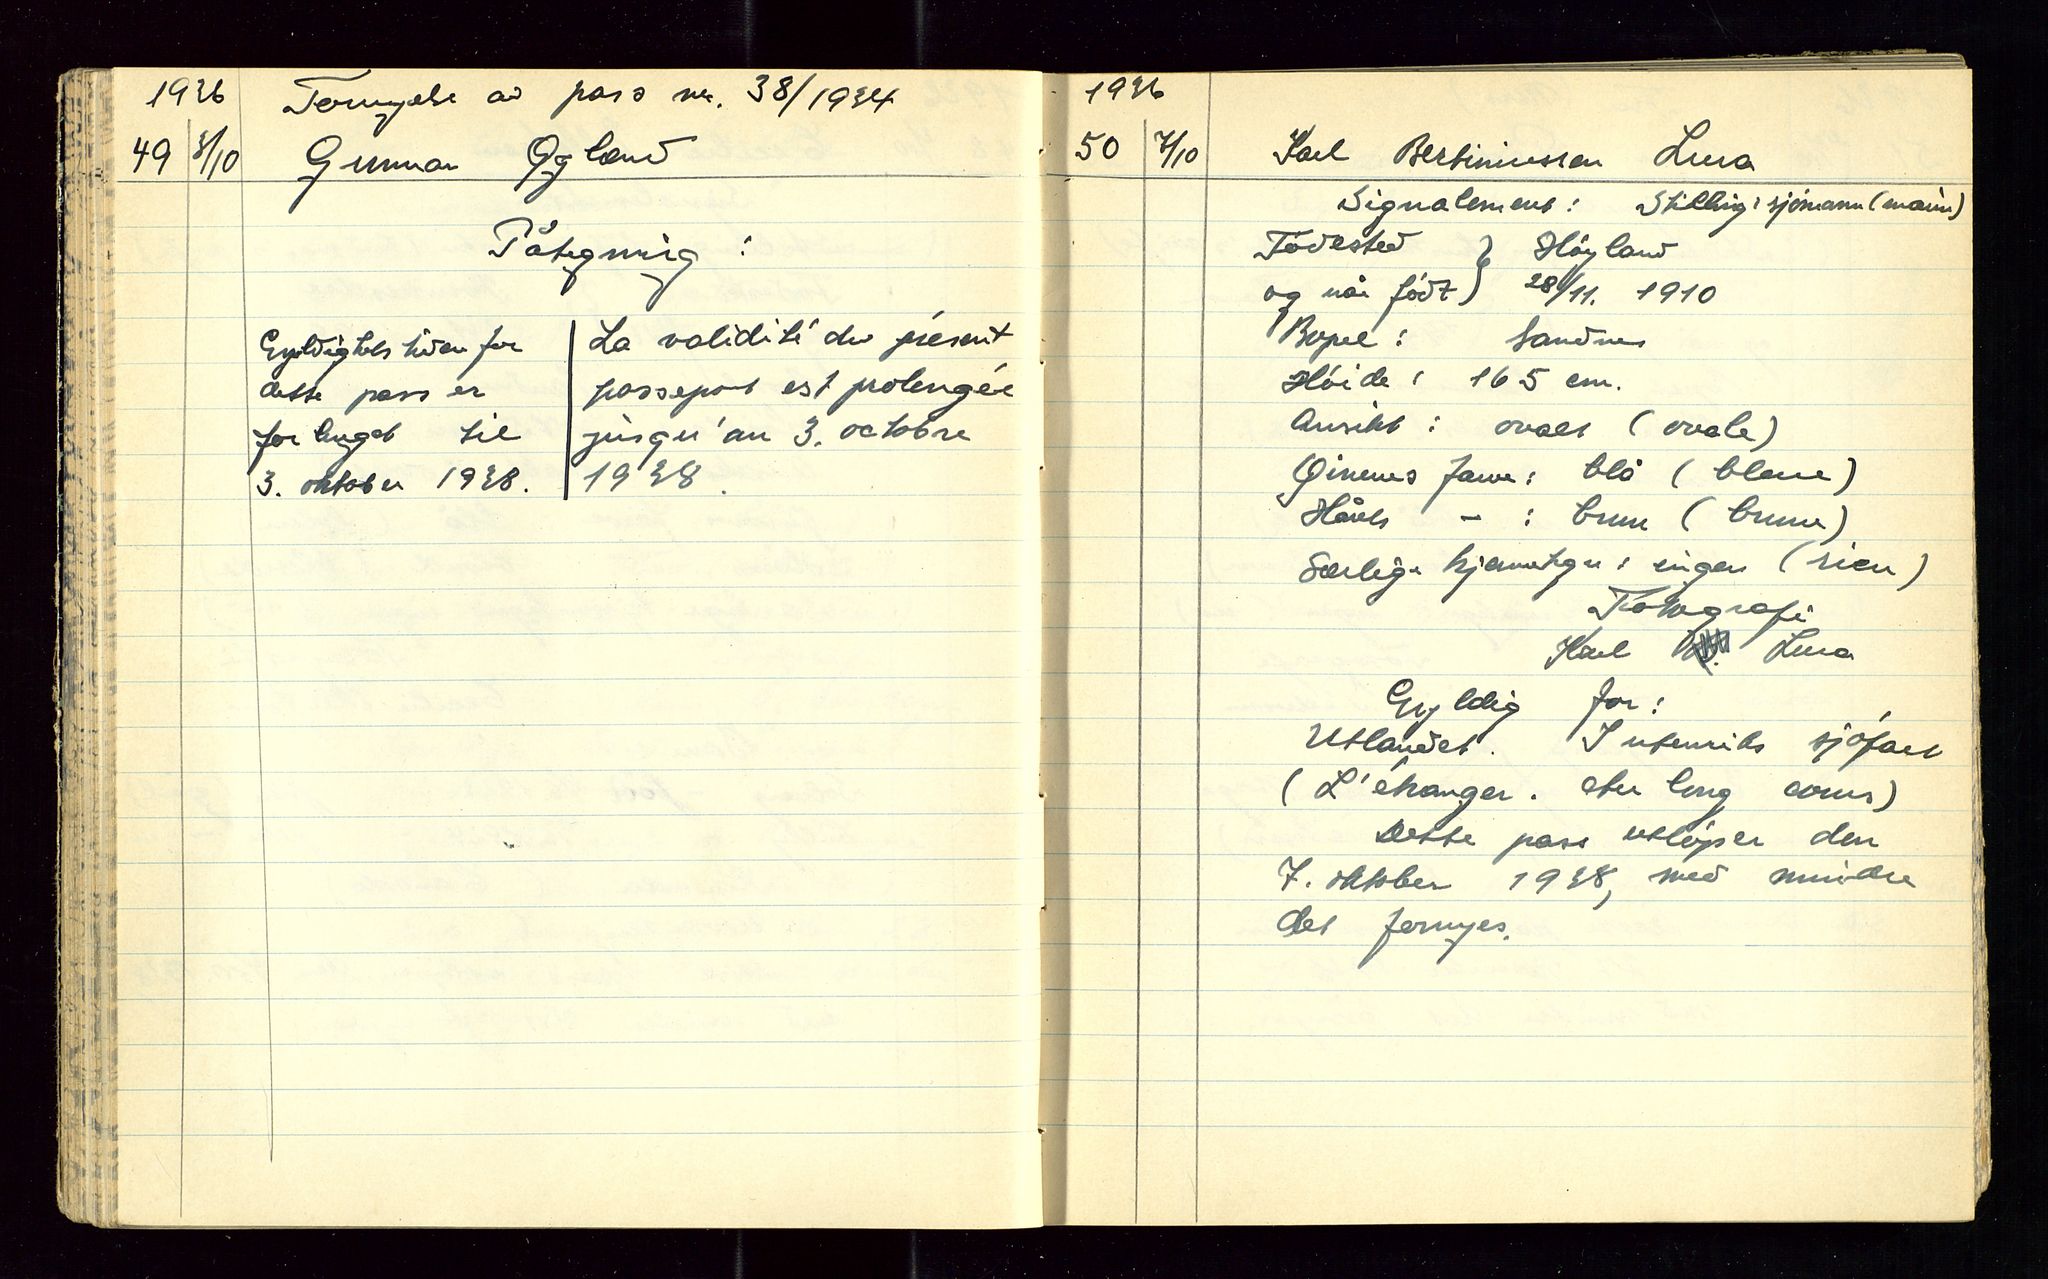 1936 Fornyelse av pass nr. 38/1934
49 3/10 Gunnar Øgland
Påtegning:
Gyldighetstiden for
dette pass er
forlenget til
3. oktober 1938.
La validité du présent
passeport est prolongée
jusqu'au 3. octobre
1938.
1936
50 7/10 Karl Bertiniussen Lura
Signalement: Stilling: sjømann (marin)
Fødested } Høyland
og når født } 28/11. 1910
Bopel: Sandnes
Høide: 165 cm.
Ansikt: ovalt (ovale)
Øinenes farve: blå (bleue)
Hårets — : brun (brune)
Særlige kjennetegn: ingen (rien)
Fotografi
Karl Lura
Gyldig for:
Utlandet. I utenriks sjøfart
(L'étranger. et au long cours)
Dette pass utløper den
7. oktober 1938, med mindre
det fornyes.